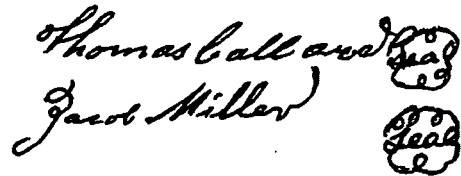 Thomas Calland Seal
Jacob Miller Seal